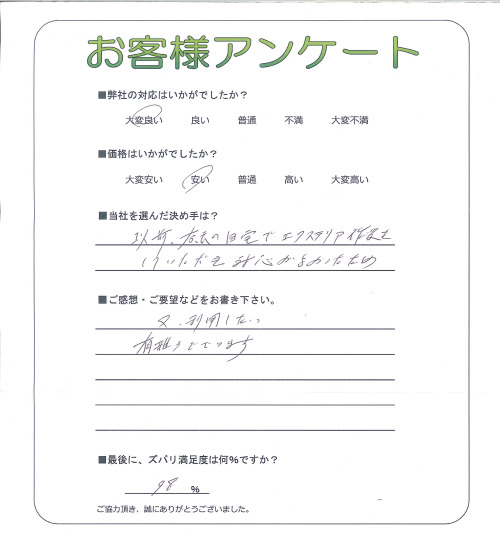 お客様アンケート
■弊社の対応はいかがでしたか？
大変良い 良い 普通 不満 大変不満
■価格はいかがでしたか？
大変安い 安い 普通 高い 大変高い
■当社を選んだ決め手は？
以前、 の自宅でエクステリア作業を
していただき対応がよかったため
■ご感想・ご要望などをお書き下さい。
又、利用したい
有難うございます
■最後に、ズバリ満足度は何％ですか？
98 ％
ご協力頂き、誠にありがとうございました。